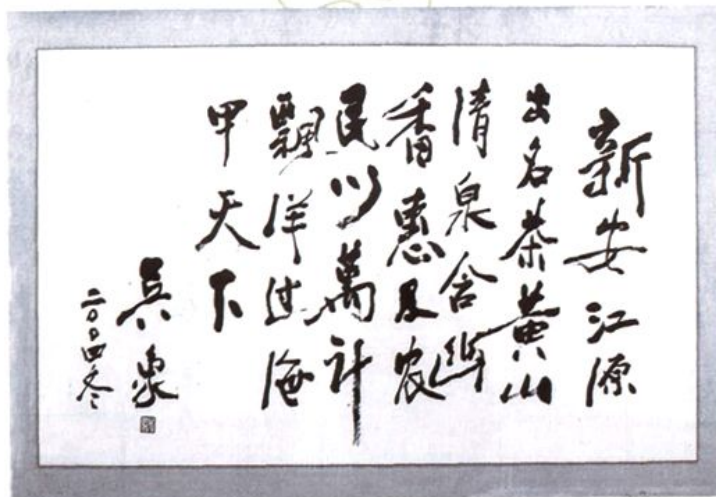 新安江源
出名茶黄山
清泉含幽
香惠及农
民以萬計
飘洋过海
甲天下
二〇〇四冬